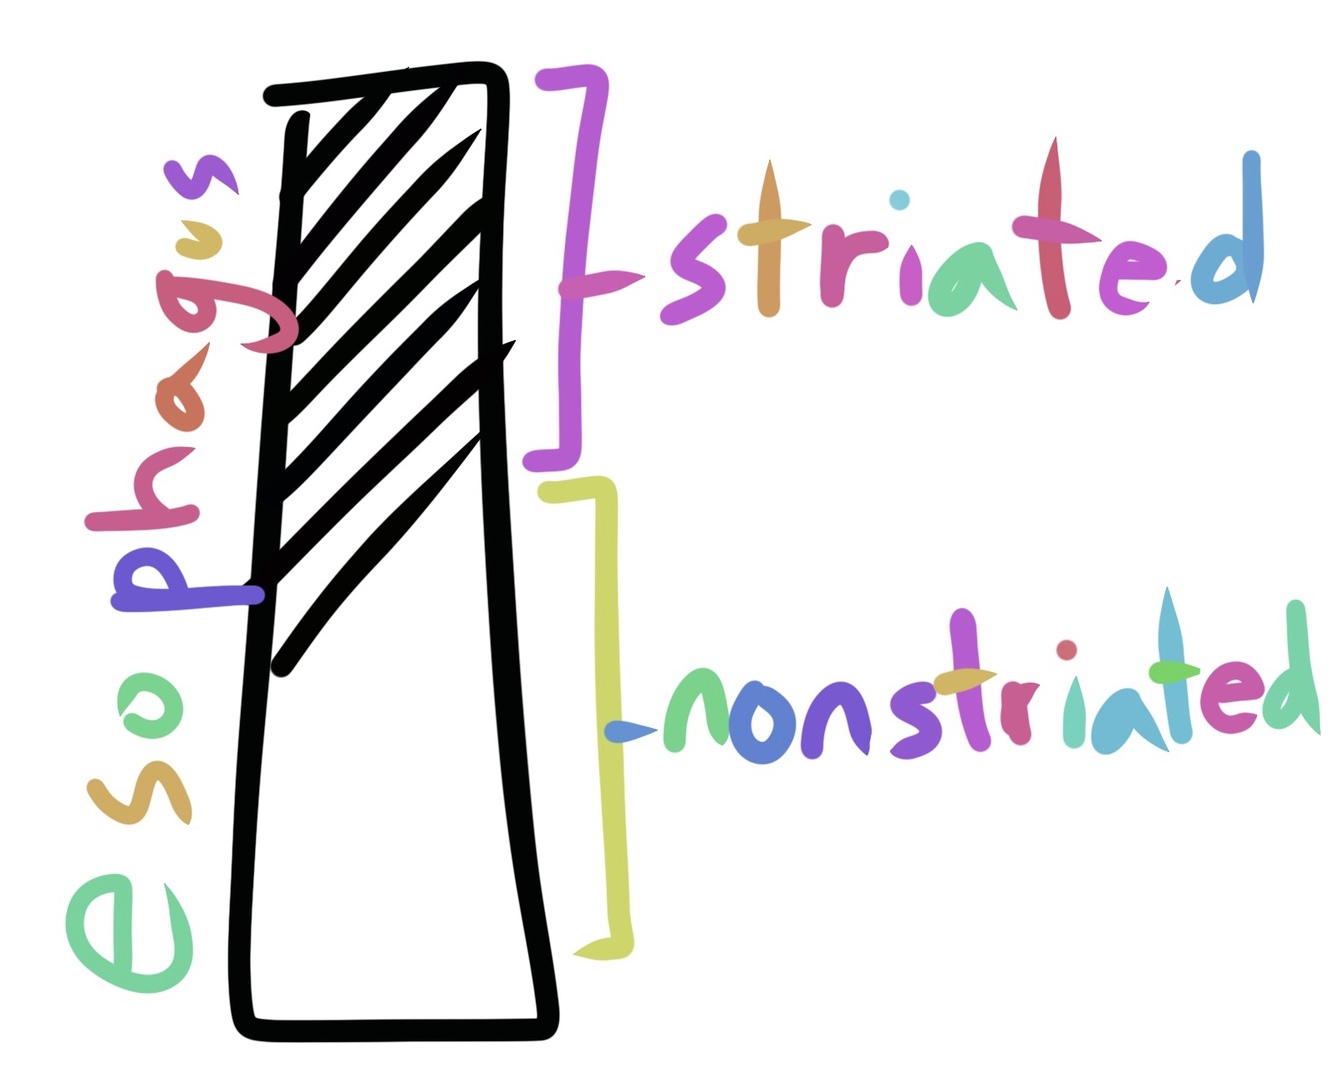 esophagus
striated
nonstriated